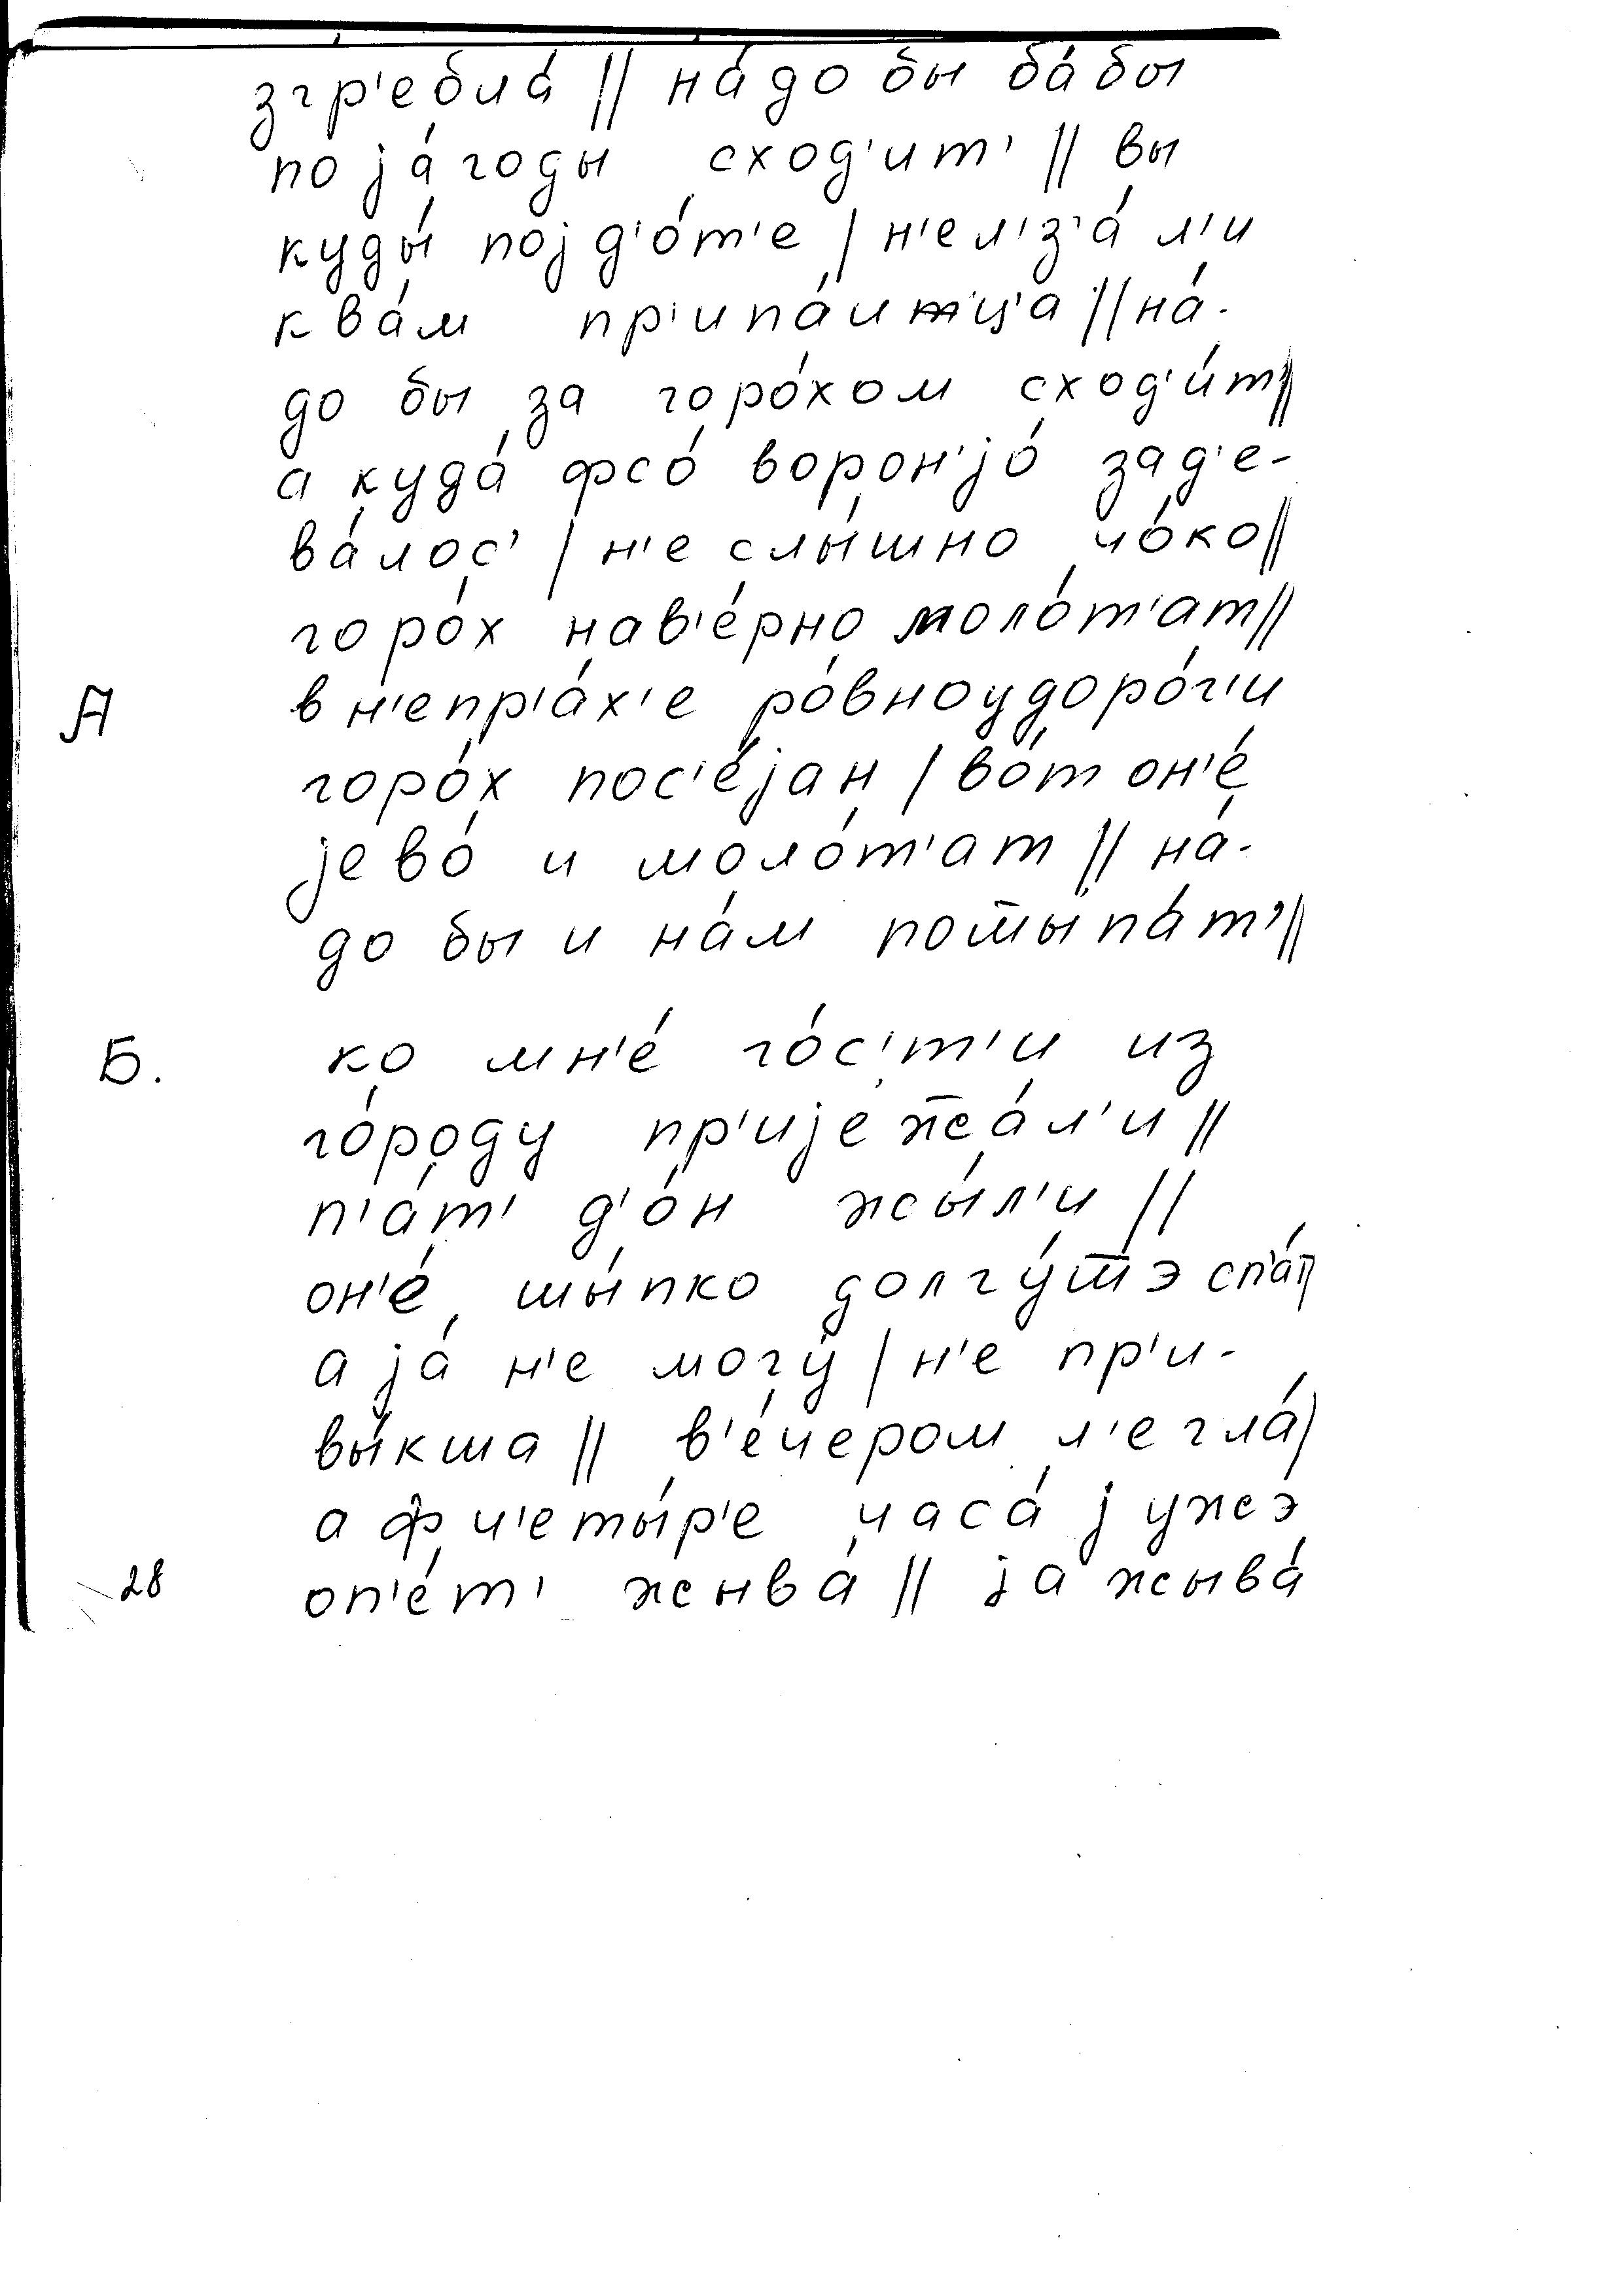 згр'ебла́ || на́до бы ба́бы
по jа́годы сход'ит' || вы
куды́ поjд'о́т'е | н'ел'з'а́ л'и
к ва́м пр'ипа́итц'а || на́-
до бы за горо́хом сход'и́т' ||
а куда́ фсо́ ворон'jо́ зад'е-
ва́лос' | н'е слы́шно чо́ко ||
горо́х нав'е́рно моло́т'ат ||
А в н'епр'а́х'е ро́вно у доро́г'и
горо́х пос'е́jан | во́т он'е́
jево́ и моло́т'ат || на́-
до бы и на́м пошшыпа́т' ||
Б. ко мн'е́ го́с'т'и из
го́роду пр'иjежжа́л'и ||
п'а́т' д'о́н жы́л'и ||
он'е́ шы́пко долгу́шшэ сп'а́т
а jа́ н'е могу́ | н'е пр'и-
вы́кша || в'е́чером л'егла́ |
а ф ч'еты́р'е часа́ j ужэ
оп'е́т' жыва́ || jа жыва́
28